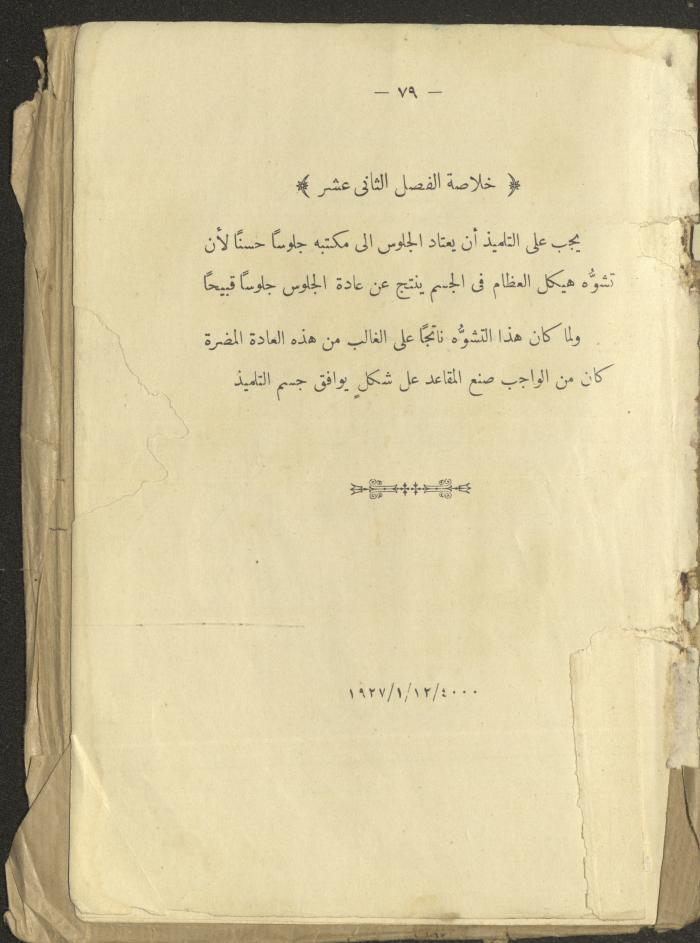 — ٧٩ —
﴿ خلاصة الفصل الثانى عشر ﴾
يجب على التلميذ أن يعتاد الجلوس الى مكتبه جلوسًا حسنًا لأن
تشوُّه هيكل العظام فى الجسم ينتج عن عادة الجلوس جلوسًا قبيحًا
ولما كان هذا التشوُّه ناتجًا على الغالب من هذه العادة المضرة
كان من الواجب صنع المقاعد عل شكلٍ يوافق جسم التلميذ
١٩٢٧/١/١٢/٤٠٠٠